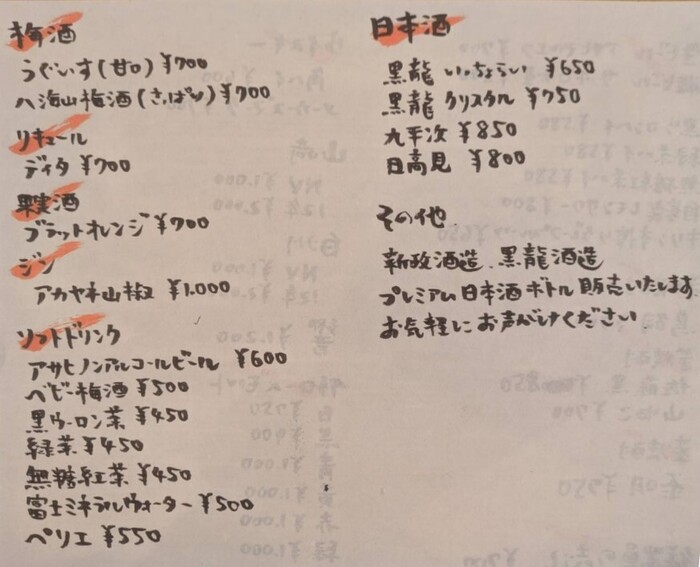 梅酒
うぐいす(甘口) ¥700
八海山梅酒(さっぱり) ¥700
リキュール
ディタ ¥700
果実酒
ブラッドオレンジ ¥700
ジン
アカヤネ山椒 ¥1.000
ソフトドリンク
アサヒノンアルコールビール ¥600
ベビー梅酒 ¥500
黒ウーロン茶 ¥450
緑茶 ¥450
無糖紅茶 ¥450
富士ミネラルウォーター ¥500
ペリエ ¥550
日本酒
黒龍 いっちょらい ¥650
黒龍 クリスタル ¥750
九平次 ¥850
日高見 ¥800
その他
新政酒造、黒龍酒造
プレミアム日本酒ボトル販売いたします
お気軽にお声がけください